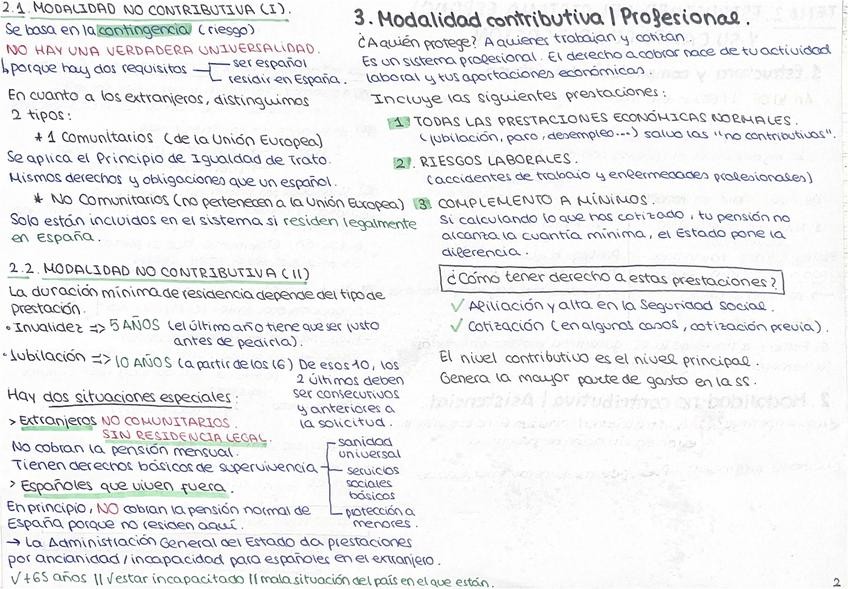 2.1. MODALIDAD NO CONTRIBUTIVA (I).
Se basa en la contingencia (riesgo)
NO HAY UNA VERDADERA UNIVERSALIDAD.
↳ porque hay dos requisitos
ser español
residir en España.
En cuanto a los extranjeros, distinguimos
2 tipos:
* 1 Comunitarios (de la Unión Europea)
Se aplica el Principio de Igualdad de Trato.
Mismos derechos y obligaciones que un español.
* No Comunitarios (no pertenecen a la Unión Europea)
Solo están incluidos en el sistema si residen legalmente
en España.
2.2. MODALIDAD NO CONTRIBUTIVA (II)
La duración mínima de residencia depende del tipo de
prestación.
• Invalidez => 5 AÑOS (el último año tiene que ser justo
antes de pedirla).
• Jubilación => 10 AÑOS (a partir de los 16) De esos 10, los
2 últimos deben
ser consecutivos
y anteriores a
la solicitud.
Hay dos situaciones especiales:
> Extranjeros NO COMUNITARIOS.
SIN RESIDENCIA LEGAL.
No cobran la pensión mensual.
Tienen derechos básicos de supervivencia
sanidad
universal
servicios
sociales
básicos
protección a
menores.
> Españoles que viven fuera.
En principio, NO cobran la pensión normal de
España porque no residen aquí.
→ La Administración General del Estado da prestaciones
por ancianidad/incapacidad para españoles en el extranjero.
√ +65 años || √ estar incapacitado || mala situación del país en el que están.
3. Modalidad contributiva / Profesional.
¿A quién protege? A quienes trabajan y cotizan.
Es un sistema profesional. El derecho a cobrar nace de tu actividad
laboral y tus aportaciones económicas.
Incluye las siguientes prestaciones:
1. TODAS LAS PRESTACIONES ECONÓMICAS NORMALES.
(jubilación, paro, desempleo...) salvo las "no contributivas".
2. RIESGOS LABORALES.
(accidentes de trabajo y enfermedades profesionales)
3 COMPLEMENTO A MÍNIMOS.
Si calculando lo que has cotizado, tu pensión no
alcanza la cuantía mínima, el Estado pone la
diferencia.
¿Cómo tener derecho a estas prestaciones?
✓ Afiliación y alta en la Seguridad Social.
✓ Cotización (en algunos casos, cotización previa).
El nivel contributivo es el nivel principal.
Genera la mayor parte de gasto en la SS.
2